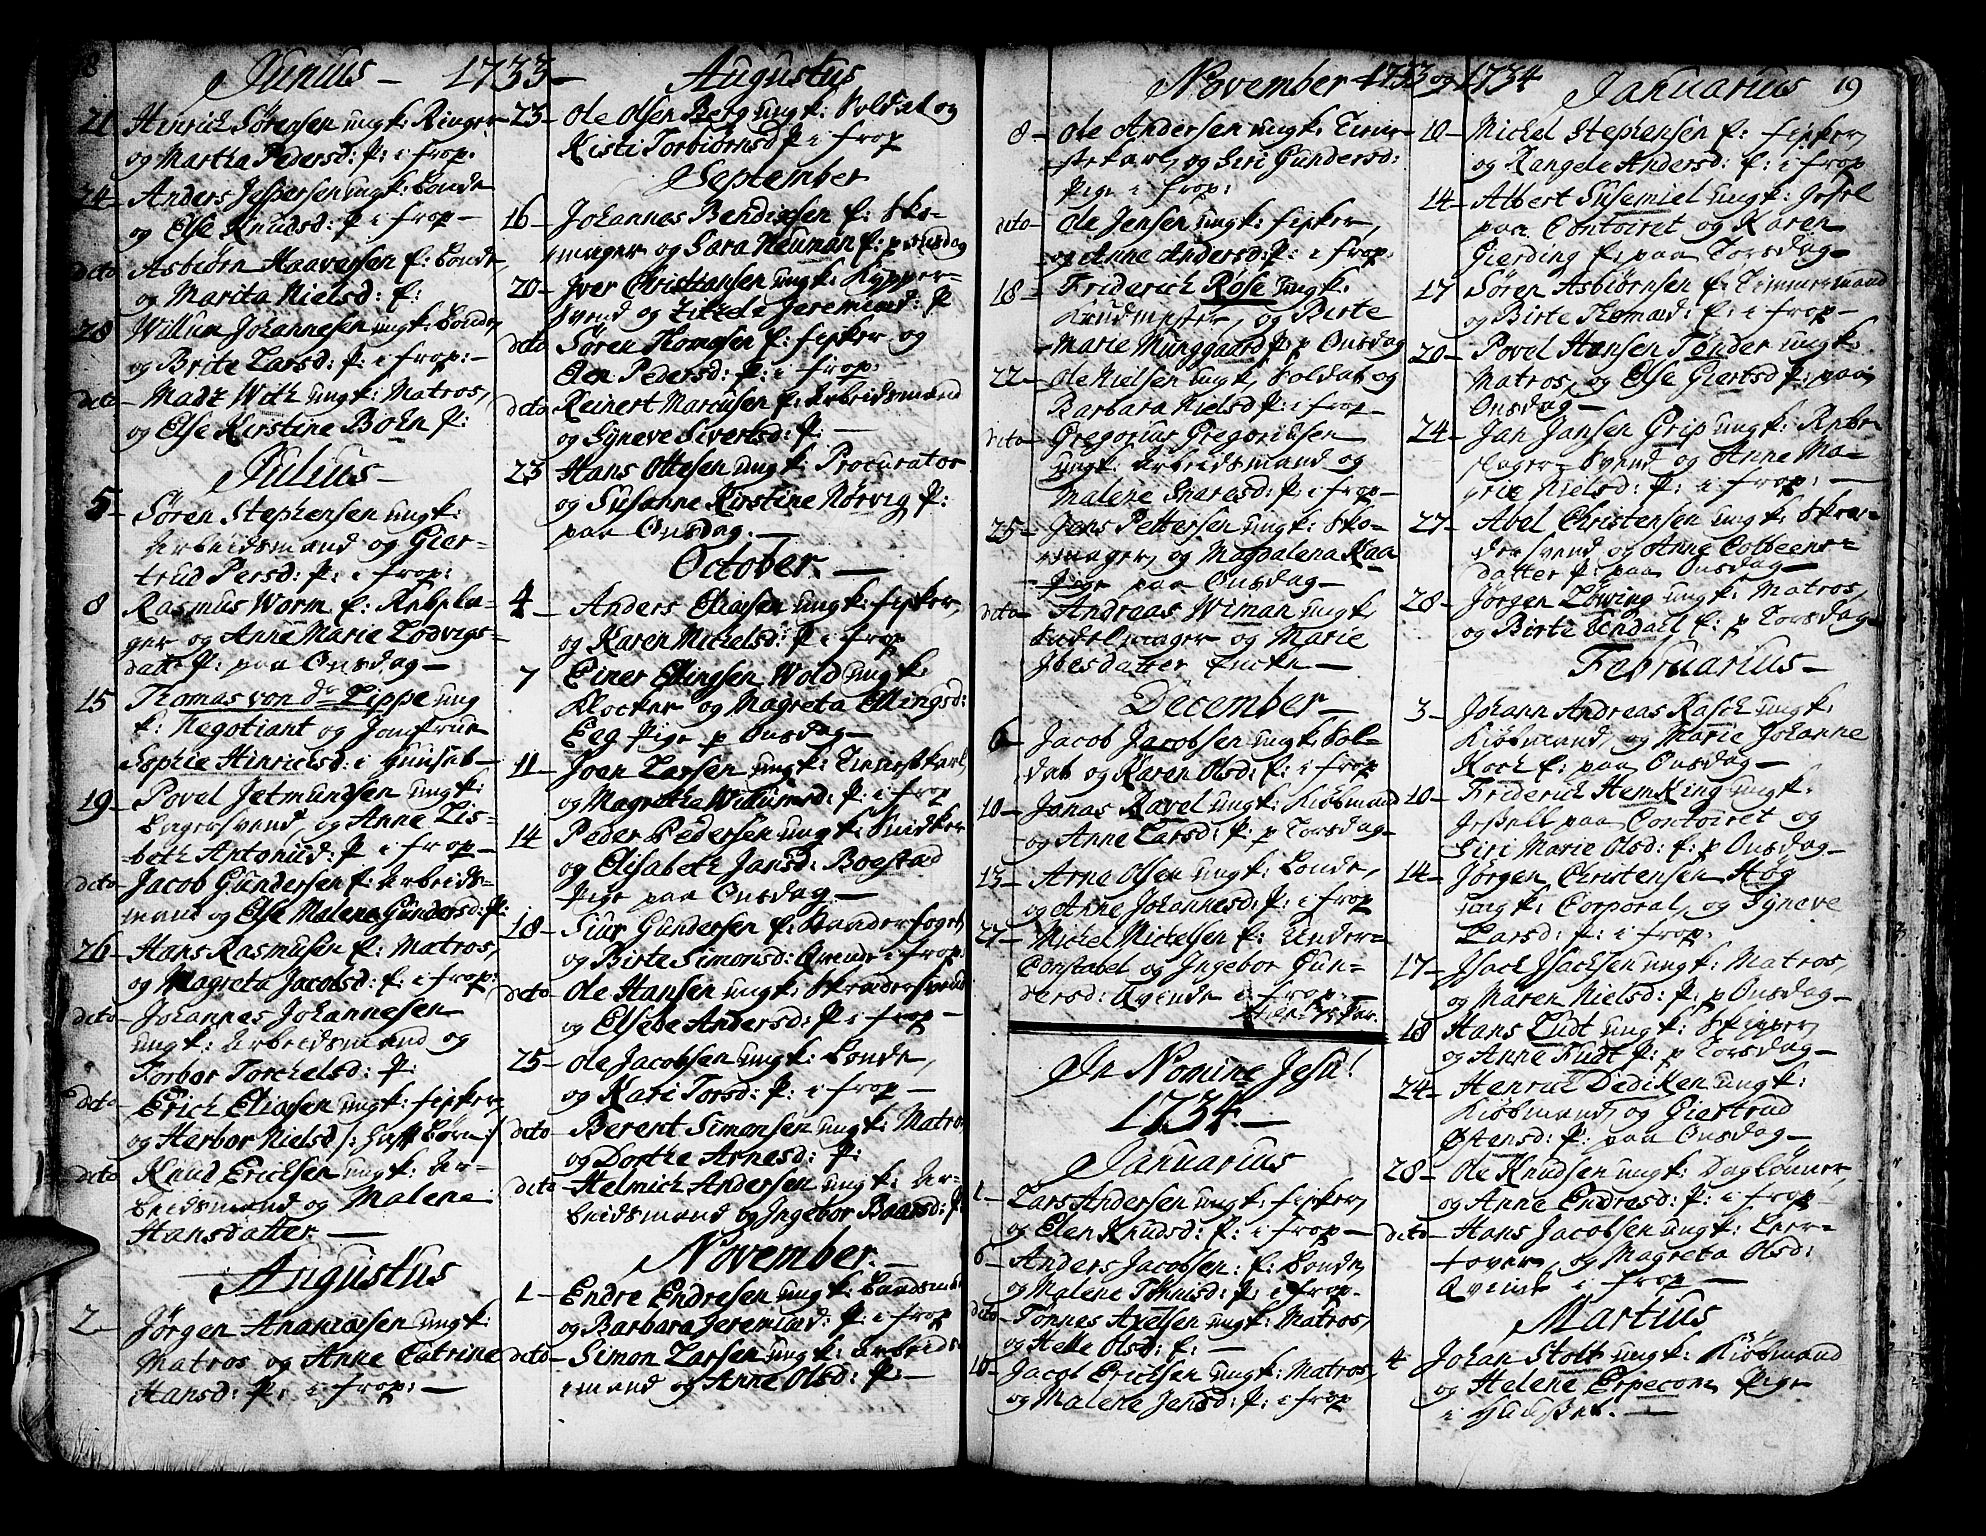 18
Junius — 1733 —
21 Hinrich Sørensen ungk: Ringer
og Martha Peders d: P: i frop:
24 — Anders Jespersen ungk: bonde
og Else Knudsd: P: i frop —
dito Asbiørn Haaversen E: bonde,
og Marita Nielsd: E:
28 Willum Johannesen ungk: bonde,
og Brite Larsd: P: i frop: —
dito — Madz With ungk: Matros,
og Else Kirstine Bohn P:
Julius —
5 — Søren Stephensen ungk:
Arbeidsmand og Gier-
trud Persd: P: i frop:
8 Rasmus Worm E: Rebsla-
ger og Anne Marie Lodvigs-
datt P: paa Onsdag —
15 Thomas von dr Lippe ung
k: Negotiant og Jomfrue
Sophie Hinrichsd: i Huuset —
19 — Povel Jetmundsen ungk:
svend, og Anne Lis-
beth Antonisd: P i frop —
dito Jacob Gundersen E: Arbeids-
mand og Else Malene Gundersd: P:
26 — Hans Rasmusen E: Matros,
og Magreta Jacobsd: E: i frop:
dito — Johannes Johannesen
ungk: Arbeidsmand og
Torbor Torchelsd: P:
dito — Erich Eliasen ungk: fisker,
og Herbor Nielsd /: :/
dito Knud Ericksen ungk: Ar-
beidsmand og Malene
Hansdatter —
Augustus
2 — Jørgen Ananiasen ungk:
Matros og Anne Catrine
Hansd: P: i frop: —
Augustus
23 — Ole Olsen Berg ungk: Soldat og
Kisti Torbiørnsd P i frop
September
16 — Johannes Bendixen E: Sko-
mager og Sara Neuman E: p Onsdag
20 — Iver Christiansen ungk: Kypper-
svend og Zitzele Jeremiasd: P
dito Søren Thomesen E: fisker og
Elen Pedersd: P: i frop:
dito — Reinert Marcusen E: Arbeidsmand
og Syneve Sivertsd: P: —
23 Hans Ottesen ungk: Procurator
og Susanne Kirstine Nørvig P:
paa Onsdag. —
October. —
4 — Anders Eliasen ungk: fisker,
og Karen Michelsd: P: i frop
7 Einer Ellingsen Wold ungk:
Klocker og Magreta Ellingsd:
Eeg Pige p Onsdag —
11 — Joen Larsen ungk:
og Magrethe Willumsd: P: i frop
14 Peder Pedersen ungk: Snidker
og Elisabeth Jansd: Boestad
Pige paa Onsdag —
18 — Siur Gundersen E:
og Birte Simonsd: Qvinde i frop:
dito — Ole Hansen ungk: Skrædersvend
og Elsebe Andersd: P: i frop
25 — Ole Jacobsen ungk: bonde,
og Kari Torsd: P: i frop —
dito — Berent Simonsen ungk: Matros
og Dorthe Arnesd: P:
dito — Helmich Andersen ungk: Ar-
beidsmand og Ingebor Baarsd: P:
November. —
1 — Endre Endresen ungk:
og Barbara Jeremiasd: P: i frop
dito — Simon Larsen ungk: Arbeids-
mand og Anne Olsd: P: —
November 1733 og 1734
8 — Ole Andersen ungk:
og Siri Gundersd:
Pige i frop:
dito Ole Jensen ungk: fisker,
og Anne Andersd: P: i frop:
18 — Friderich Røse ungk:
og Birte
Marie Munggaard P: p Onsdag
22 — Ole Nielsen ungk, Soldat og
Barbara Nielsd P: i frop —
dito Gregorius Gregoriusen
ungk: Arbeidsmand og
Malene Snaresd: P: i frop —
25 — Jens Pettersen ungk: Sko-
mager, og Magdalena Kaa
Pige paa Onsdag —
dito — Andreas Wiman ungk
og Marie
Ibesdatter Encke —
December —
6 Jacob Jacobsen ungk: Sol-
dat og Karen Olsd: P: i frop
10 — Jonas Ravel ungk: Kiøbmand
og Anne Larsd: P: p Torsdag —
13 — Arne Olsen ungk: bonde,
og Anne Johannesd: P: i frop
27 — Michel Michelsen E: Under-
Constabel og Ingebor Gun-
dersd: Qvinde i frop: —
In Nomine Jesu!
1734. —
Januarius
1 — Lars Andersen ungk: fisker,
og Elen Knudsd: P: i frop:
6 — Anders Jacobsen: E: bonde,
og Malene Tønnisd: P: i frop.
dito — Tønnes Axelsen ungk: Matros,
og Helle Olsd: E: —
10 — Jacob Ericksen ungk: Matros,
og Malene Jensd: P: i frop
Januarius 19
10 — Michel Stephensen E: fisker,
og Rangele Andersd: E: i frop
14 — Albert Susemiel ungk: Gesel
paa Contoiret og Karen
Gierding E: paa Torsdag —
17 Søren Asbiørnsen E: Timmermand
og Birte Thomasd: E: i frop —
20 — Povel Hansen Tønder ungk:
Matros, og Else Giertsd P: paa
Onsdag —
24 — Jan Jansen Grip ungk: Rebe-
slager-Svend og Anne Ma-
grie Nielsd: P: i frop: —
27 — Abel Christensen ungk: Skræ-
dersvend og Anne Colbeens-
datter P: paa Onsdag —
28 — Jørgen Løwing ungk: Matros,
og Birte E: p Torsdag —
Februarius —
3 — Johann Andreas Rasch ungk:
Kiøbmand, og Marie Johanne
Koch E: paa Onsdag —
10 — Friderich Hemking ungk:
Gesell paa Contoiret og
Siri Marie Olsd: E: p Onsdag —
14 — Jørgen Christensen Høg
ungk: Corporal, og Syneve
Larsd: P: i frop:
17 — Isach Isachsen ungk: Matros,
og Maren Nielsd: P: p Onsdag —
18 Hans Ludt ungk: Skipper,
og Anne Fludt P: p Torsdag —
24 — Henrich Dediken ungk:
Kiøbmand, og Giertrud
Østensd: P: paa Onsdag —
28 — Ole Knudsen ungk: Dagløner,
og Anne Endresd: P: i frop —
dito — Hans Jacobsen ungk:
og Magreta Olsd:
Qvinde i frop —
Martius
4 Johan Stolt ungk: Kiøbmand
og Helene Erpecom Pige
i Huuset. —